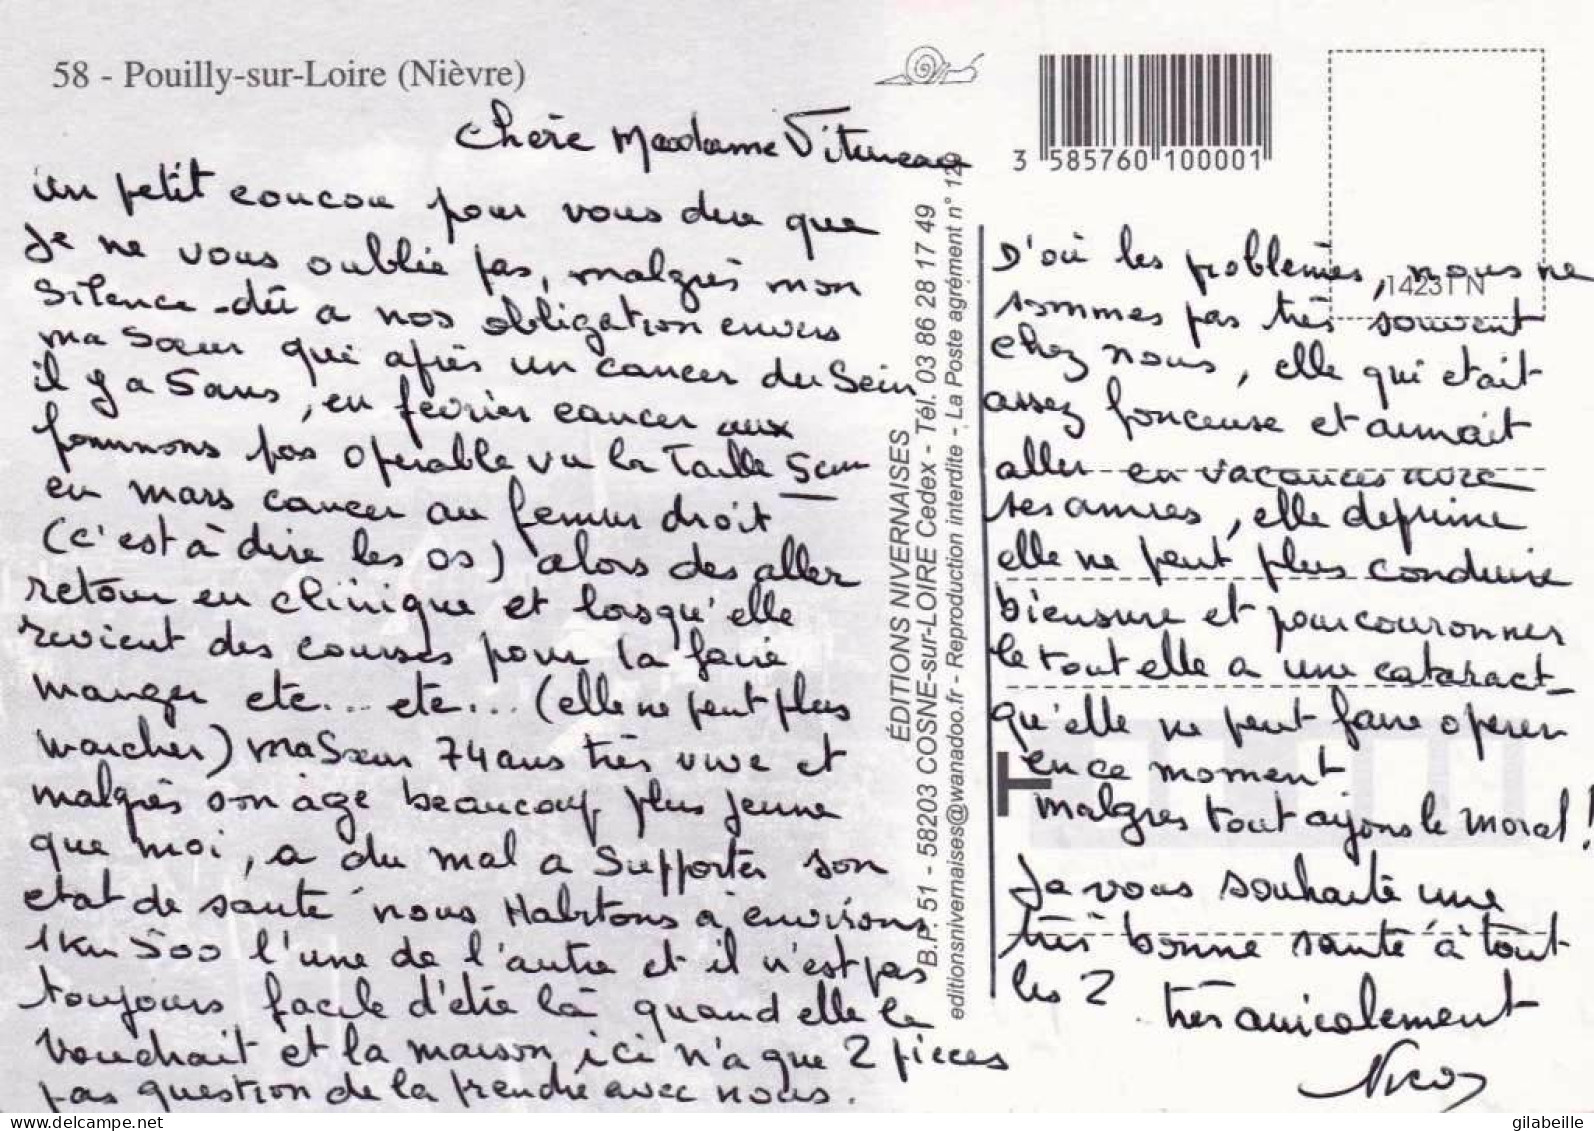 58 - Pouilly-sur-Loire (Nièvre)
Chère Madame
un petit coucou pour vous dire que
Je ne vous oublie pas, malgrès mon
Silence dû a nos obligation envers
ma Sœur qui après un cancer du Sein
il y a 5 ans, en février cancer aux
poumons pas operable vu la Taille 5cm
en mars cancer au femur droit
(c'est à dire les os) alors des aller
retour en clinique et lorsqu'elle
revient des courses pour la faire
manger etc... etc... (elle ne peut plus
marcher) ma Sœur 74 ans très vive et
malgrès son âge beaucoup plus jeune
que moi, a du mal a Supporter son
etat de santé nous Habitons à environs
1km 500 l'une de l'autre et il n'est pas
toujours facile d'être là quand elle le
voudrait et la maison ici n'a que 2 pièces
pas question de la prendre avec nous.
3 585760 100001
14231 N
ÉDITIONS NIVERNAISES
B.P. 51 - 58203 COSNE-sur-LOIRE Cedex - Tél. 03 86 28 17 49
editionsnivernaises@wanadoo.fr - Reproduction interdite - La Poste agrément n° 12
D'où les problèmes, nous ne
sommes pas très souvent
chez nous, elle qui etait
assez fonceuse et aimait
aller en vacances avec
ses amies, elle deprime
elle ne peut plus conduire
biensure et pour couronner
le tout elle a une cataract
qu'elle ne peut faire operer
en ce moment
malgres tout ayons le moral!
Je vous souhaite une
très bonne santé à tout
les 2
très amicalement
gilabeille